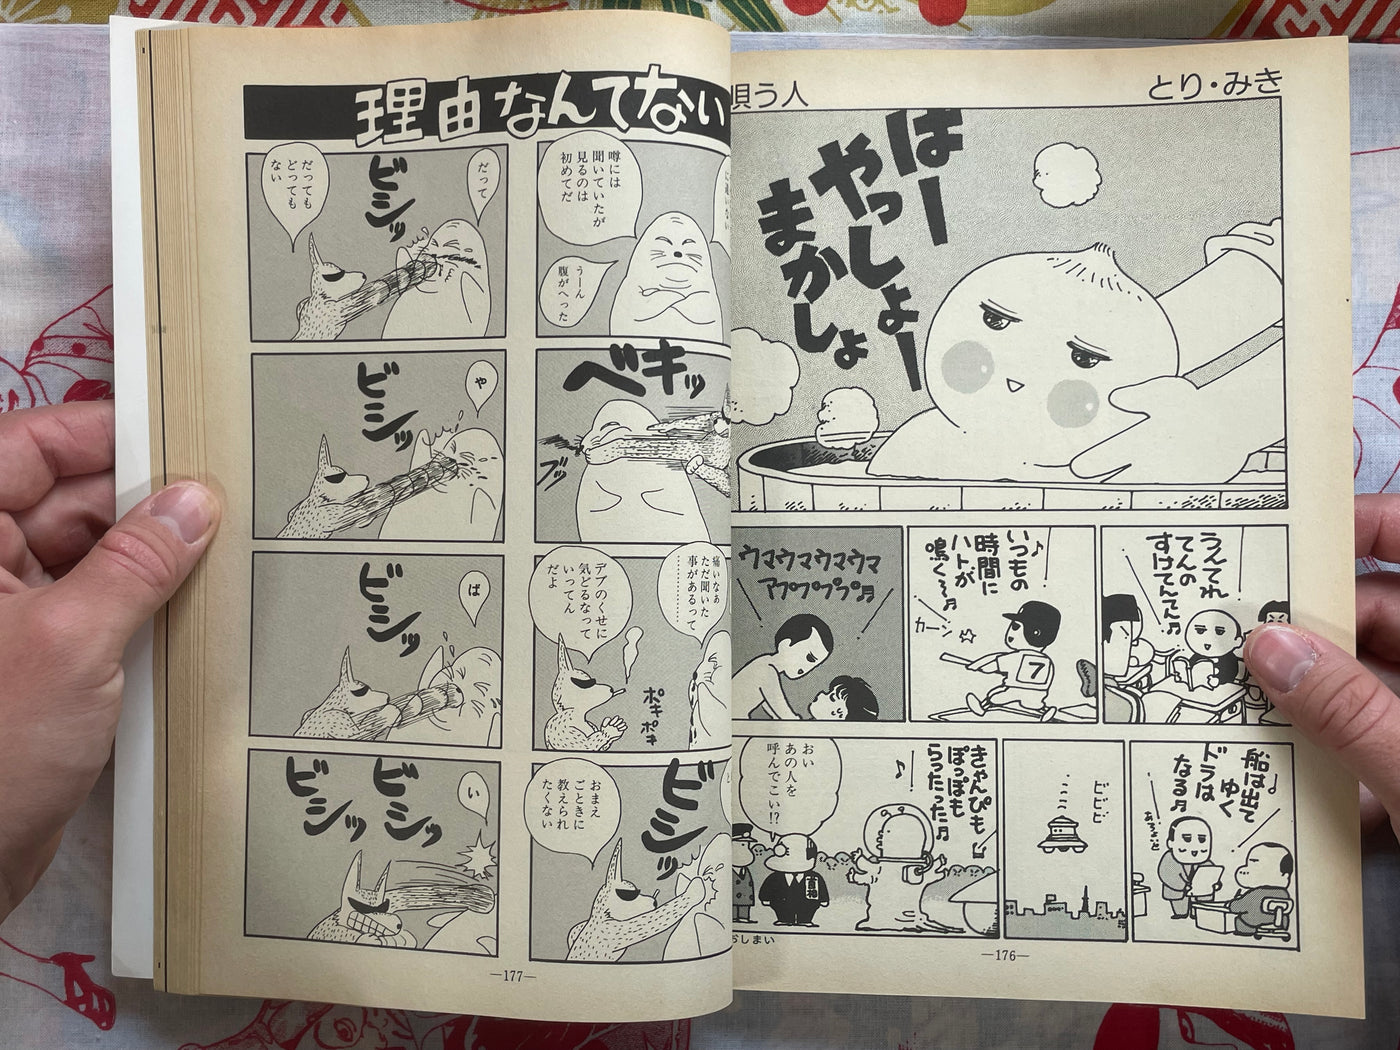 とり・みき
唄う人
はー
やっしょー
まかしょ
うんてれ
てんの
すけてんてん♬
いつもの
時間に
ハトが
鳴く〜♬
カーン
7
ウマウマウマウマ
アププププ♬
船は出て
ゆく
ドラは
なる♬
ビビビ
きゃんぴも
ぽっぽも
らったった♬
おい
あの人を
呼んでこい!?
おしまい
—176—
理由なんてない
噂には
聞いていたが
見るのは
初めてだ
うーん
腹がへった
ベキッ
ブッ
痛いなぁ
ただ聞いた
事があるって
………
デブのくせに
気どるなって
いってん
だよ
ポキ
ポキ
ビシッ
おまえ
ごときに
教えられ
たくない
だって
ビシッ
だっても
どっても
ない
や
ビシッ
ば
ビシッ
い
ビシッ
ビシッ
—177—